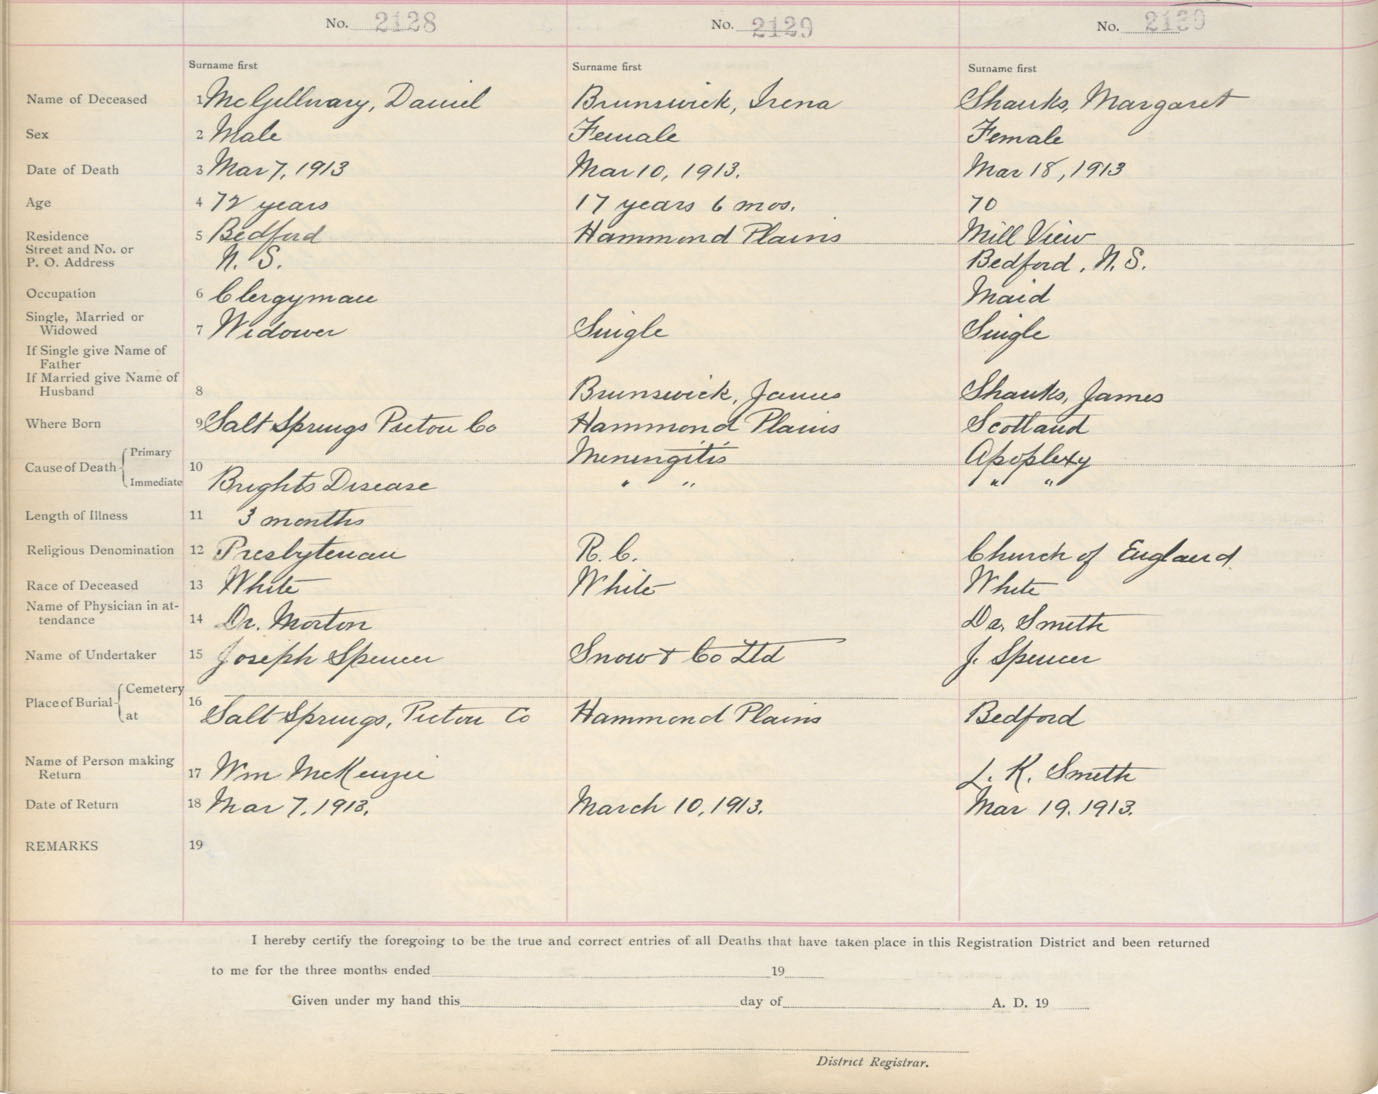 No. 2128 No. 2129 No. 2130
Surname first Surname first Surname first
Name of Deceased 1 McGillvary, Daniel Brunswick, Irena Shanks, Margaret
Sex 2 Male Female Female
Date of Death 3 Mar 7, 1913 Mar 10, 1913. Mar 18, 1913
Age 4 72 years 17 years 6 mos. 70
Residence 5 Bedford Hammond Plains Mill View
Street and No. or
P. O. Address N. S. Bedford, N. S.
Occupation 6 Clergyman Maid
Single, Married or
Widowed 7 Widower Single Single
If Single give Name of
Father
If Married give Name of
Husband 8 Brunswick, James Shanks, James
Where Born 9 Salt Springs Pictou Co Hammond Plains Scotland
Cause of Death Primary 10 Meningitis Apoplexy
Immediate Brights Disease " " " "
Length of Illness 11 3 months
Religious Denomination 12 Presbyterian R. C. Church of England
Race of Deceased 13 White White White
Name of Physician in at-
tendance 14 Dr. Morton Dr. Smith
Name of Undertaker 15 Joseph Spencer Snow & Co Ltd J. Spencer
Place of Burial Cemetery 16
at Salt Springs, Pictou Co Hammond Plains Bedford
Name of Person making
Return 17 Wm McKenzie L. K. Smith
Date of Return 18 Mar 7, 1913. March 10, 1913. Mar 19. 1913.
REMARKS 19
I hereby certify the foregoing to be the true and correct entries of all Deaths that have taken place in this Registration District and been returned
to me for the three months ended 19
Given under my hand this day of A. D. 19
District Registrar.